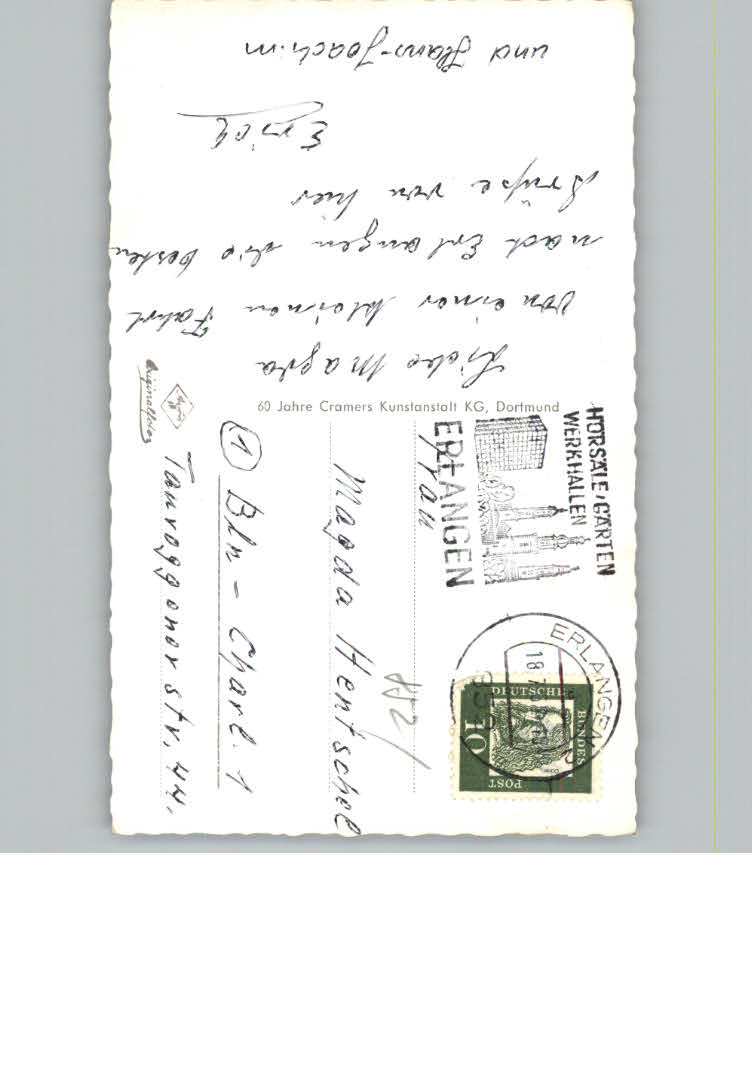 Liebe Magda
Von einer kleinen Fahrt
nach Erlangen die besten
Grüße von hier
Erich
und Hans-Joachim
60 Jahre Cramers Kunstanstalt KG, Dortmund
Originalfoto
HÖRSÄLE, GÄRTEN
WERKHALLEN
ERLANGEN
ERLANGEN
18.7.
DEUTSCHE
BUNDES
POST
10
Frau
Magda Hentschel
852
(1) Bln - Charl. 1
Tauroggenerstr. 44.